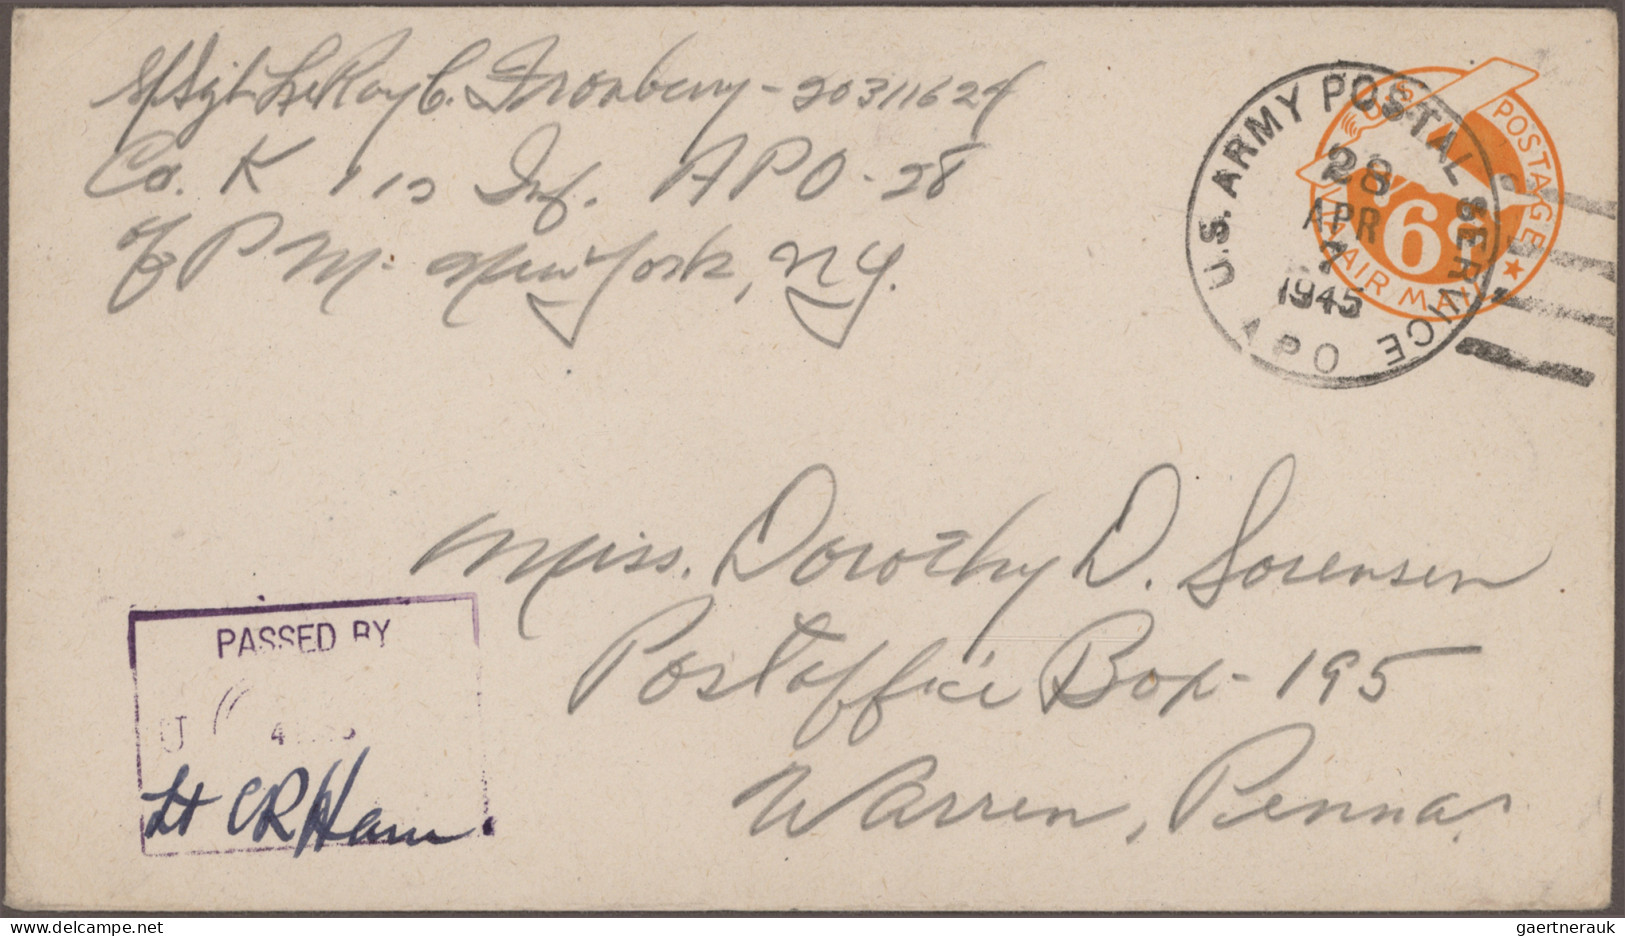 S/Sgt LeRoy C. Ironberry - 20311624
Co. K 112 Inf. APO - 28
℅ P M. New York, N.Y.
U.S. ARMY POSTAL SERVICE
APO
28
APR
7
1945
U.S. POSTAGE
VIA AIR MAIL
6¢
Miss. Dorothy D. Sorensen
Postoffice Box - 195
Warren, Penna.
PASSED BY
Lt CR Ham
gaertnerauk